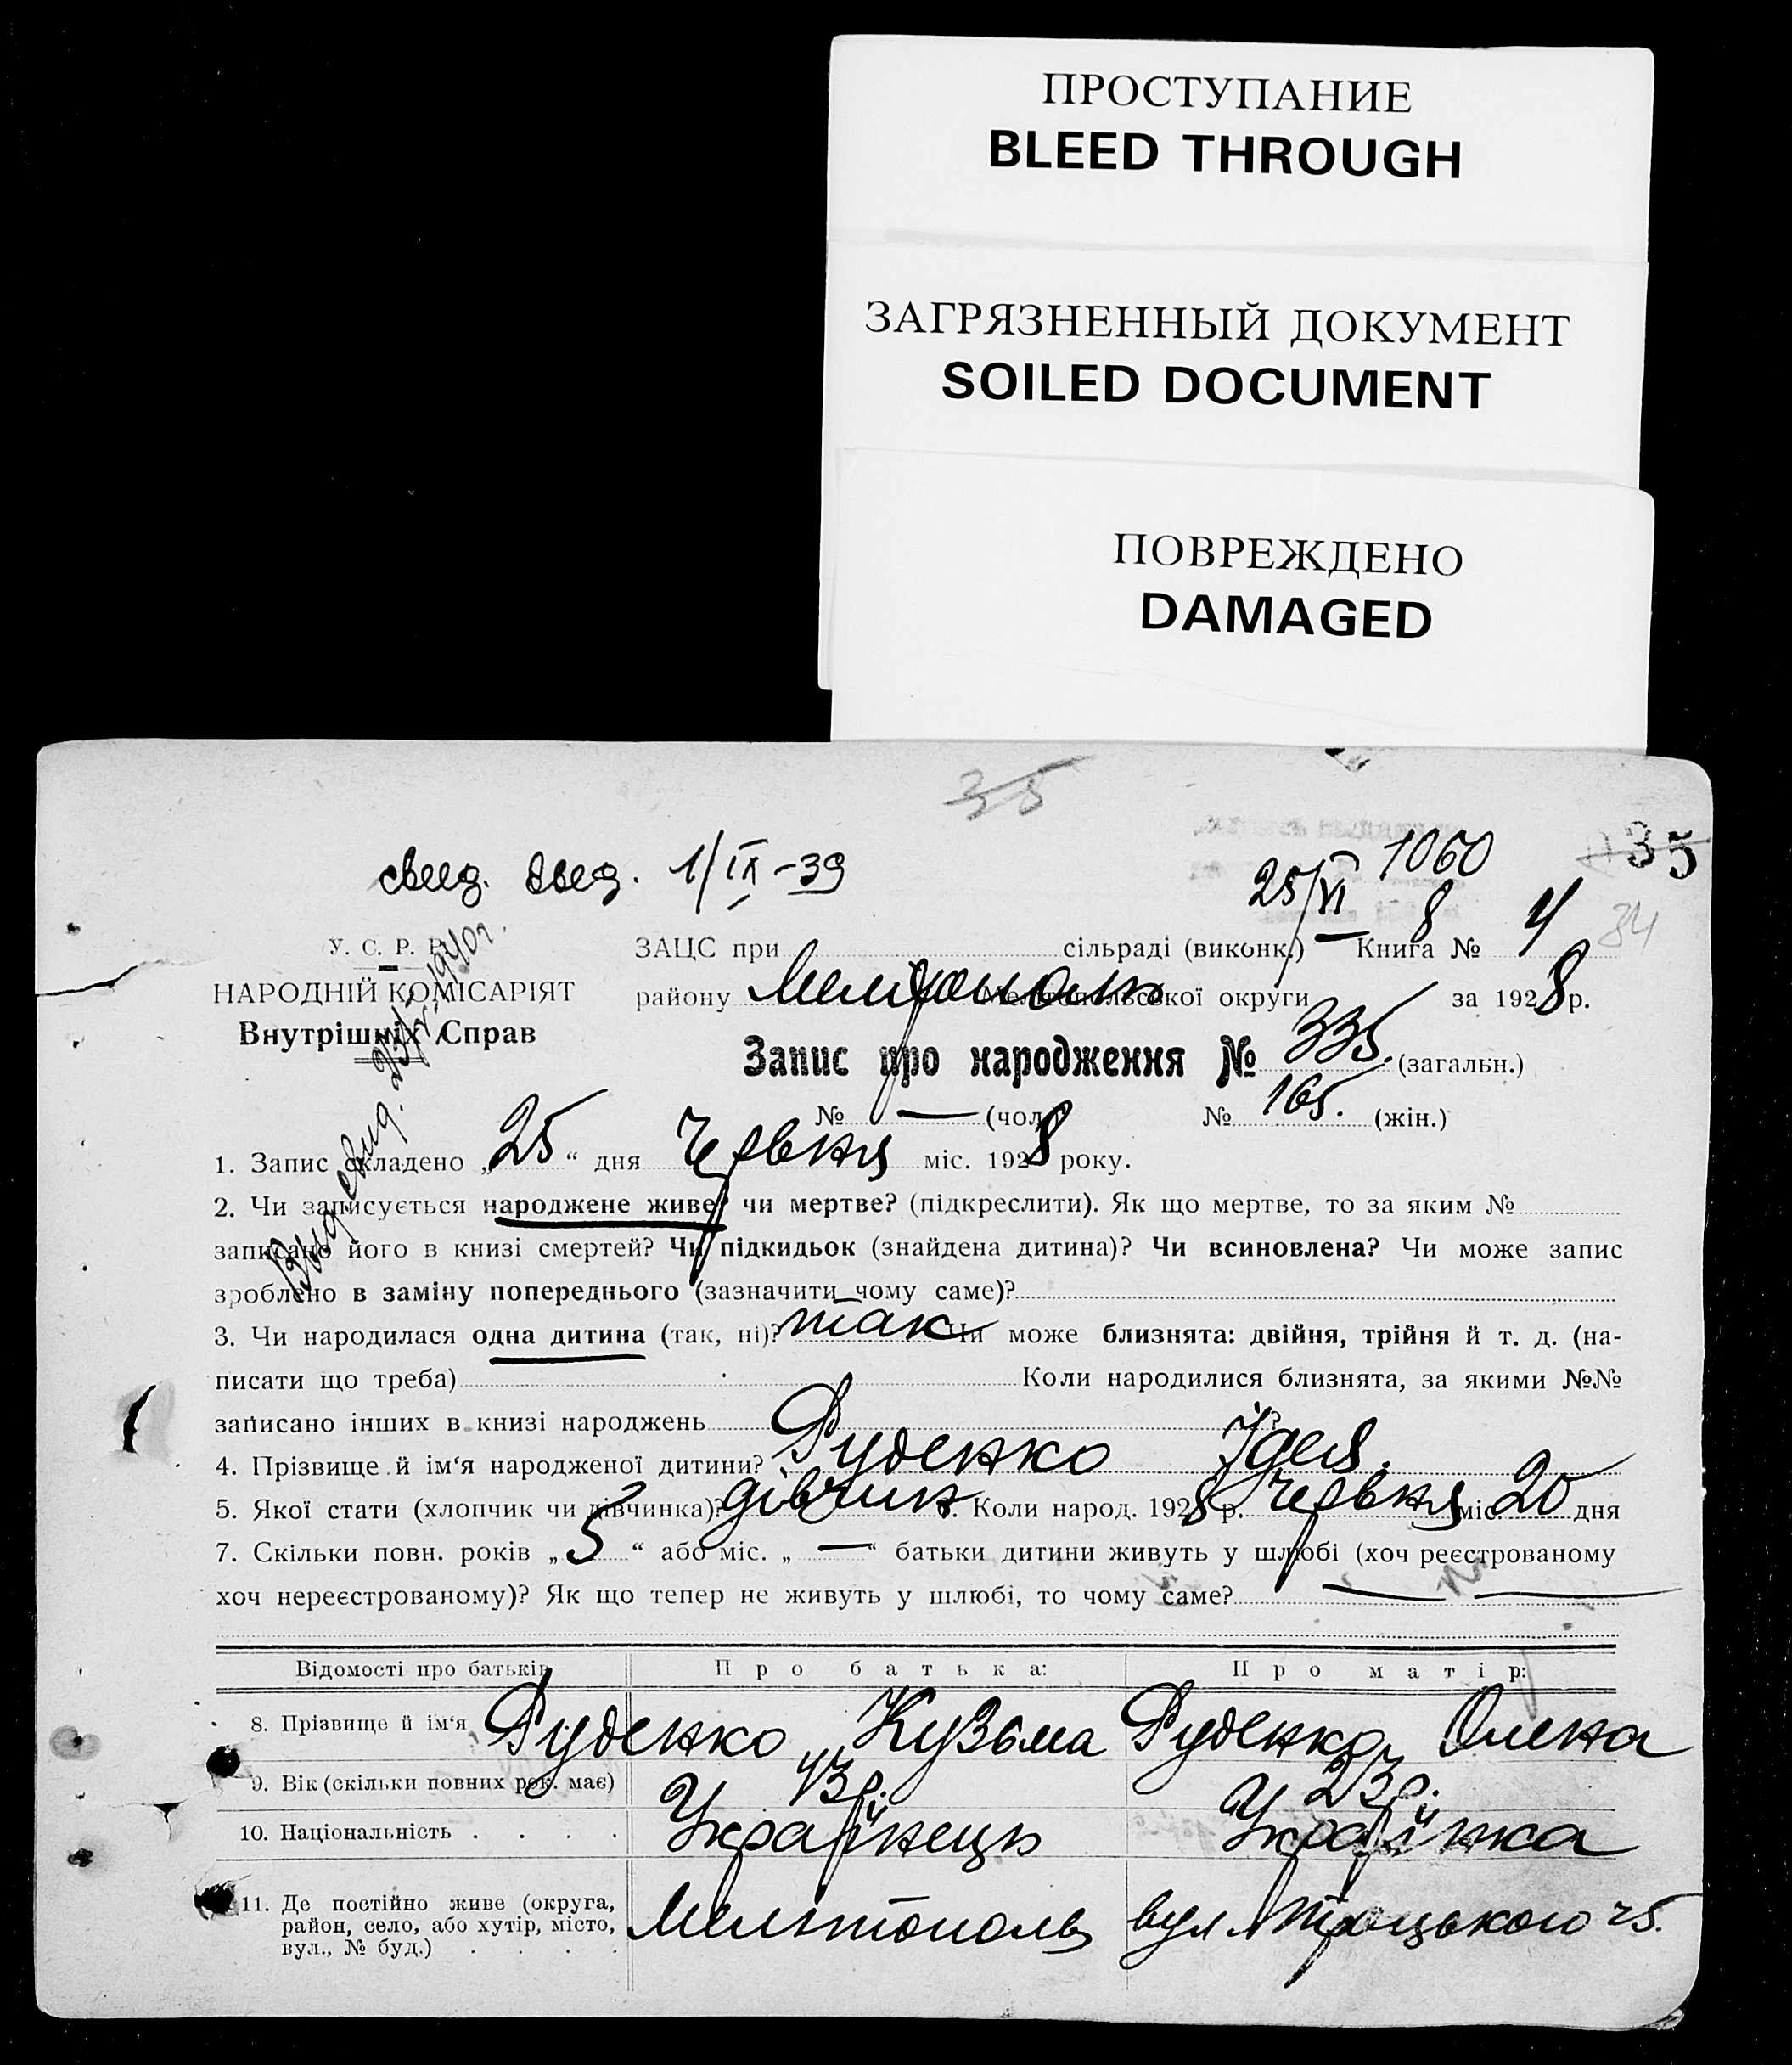 ПРОСТУПАНИЕ
BLEED THROUGH
ЗАГРЯЗНЕННЫЙ ДОКУМЕНТ
SOILED DOCUMENT
ПОВРЕЖДЕНО
DAMAGED
35
свид. выд. 1/IX-39
25/VI 8 1060
35
34
У. С. Р. Р.
НАРОДНІЙ КОМІСАРІЯТ
Внутрішніх Справ
Выд. свид. 1940г.
ЗАЦС при сільраді (виконк.) — Книга № 4
району Мелітополь Мелітопольської округи за 1928 р.
Запис про народження № 335. (загальн.)
№ — (чол.) № 165. (жін.)
1. Запис складено „25“ дня Червня міс. 1928 року.
2. Чи записується народжене живе? чи мертве? (підкреслити). Як що мертве, то за яким №
записано його в книзі смертей? Чи підкидьок (знайдена дитина)? Чи всиновлена? Чи може запис
зроблено в заміну попереднього (зазначити чому саме)?
3. Чи народилася одна дитина (так, ні)? так Чи може близнята: двійня, трійня й т. д. (на-
писати що треба) Коли народилися близнята, за якими №№
записано інших в книзі народжень ?
4. Прізвище й ім‘я народженої дитини? Руденко Ідея.
5. Якої стати (хлопчик чи дівчинка)? дівчин. 6. Коли народ. 1928 р. Червня міс. 20 дня
7. Скільки повн. років „5“ або міс. „—“ батьки дитини живуть у шлюбі (хоч реєстрованому
хоч нереєстрованому)? Як що тепер не живуть у шлюбі, то чому саме? — —
Відомості про батьків Про батька: Про матір:
8. Прізвище й ім‘я Руденко Кузьма Руденко Олена
9. Вік (скільки повних рок. має) 43 р. 23 р.
10. Національність . . . . Українець Українка
11. Де постійно живе (округа,
район, село, або хутір, місто,
вул., № буд.) . . . . Мелітополь вул Троцького 25.